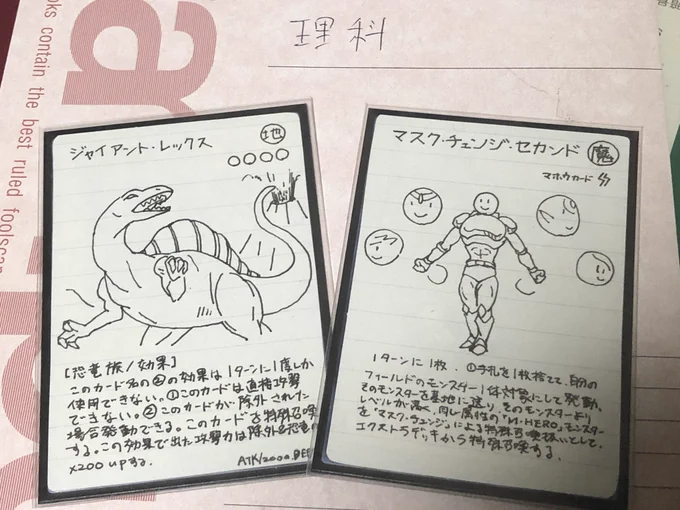 oks contain the best ruled foolscap
a
理科
ジャイアント・レックス
地
[恐竜族/効果]
このカード名の②の効果は1ターンに1度しか
使用できない。①このカードは直接攻撃
できない。②このカードが除外された
場合発動できる。このカードを特殊召喚
する。この効果で出た攻撃力は除外の恐竜の
x200upする.
ATK/2000.DEF
マスク・チェンジ・セカンド
魔
マホウカード
1ターンに1枚. ①手札を1枚捨てて、自分の
フィールドのモンスター1体対象にして発動。
そのモンスターを墓地に送り、そのモンスターより
レベルが高く、同じ属性の「M・HERO」モンスター
を「マスク・チェンジ」による特殊召喚扱いとして、
エクストラデッキから特殊召喚する.